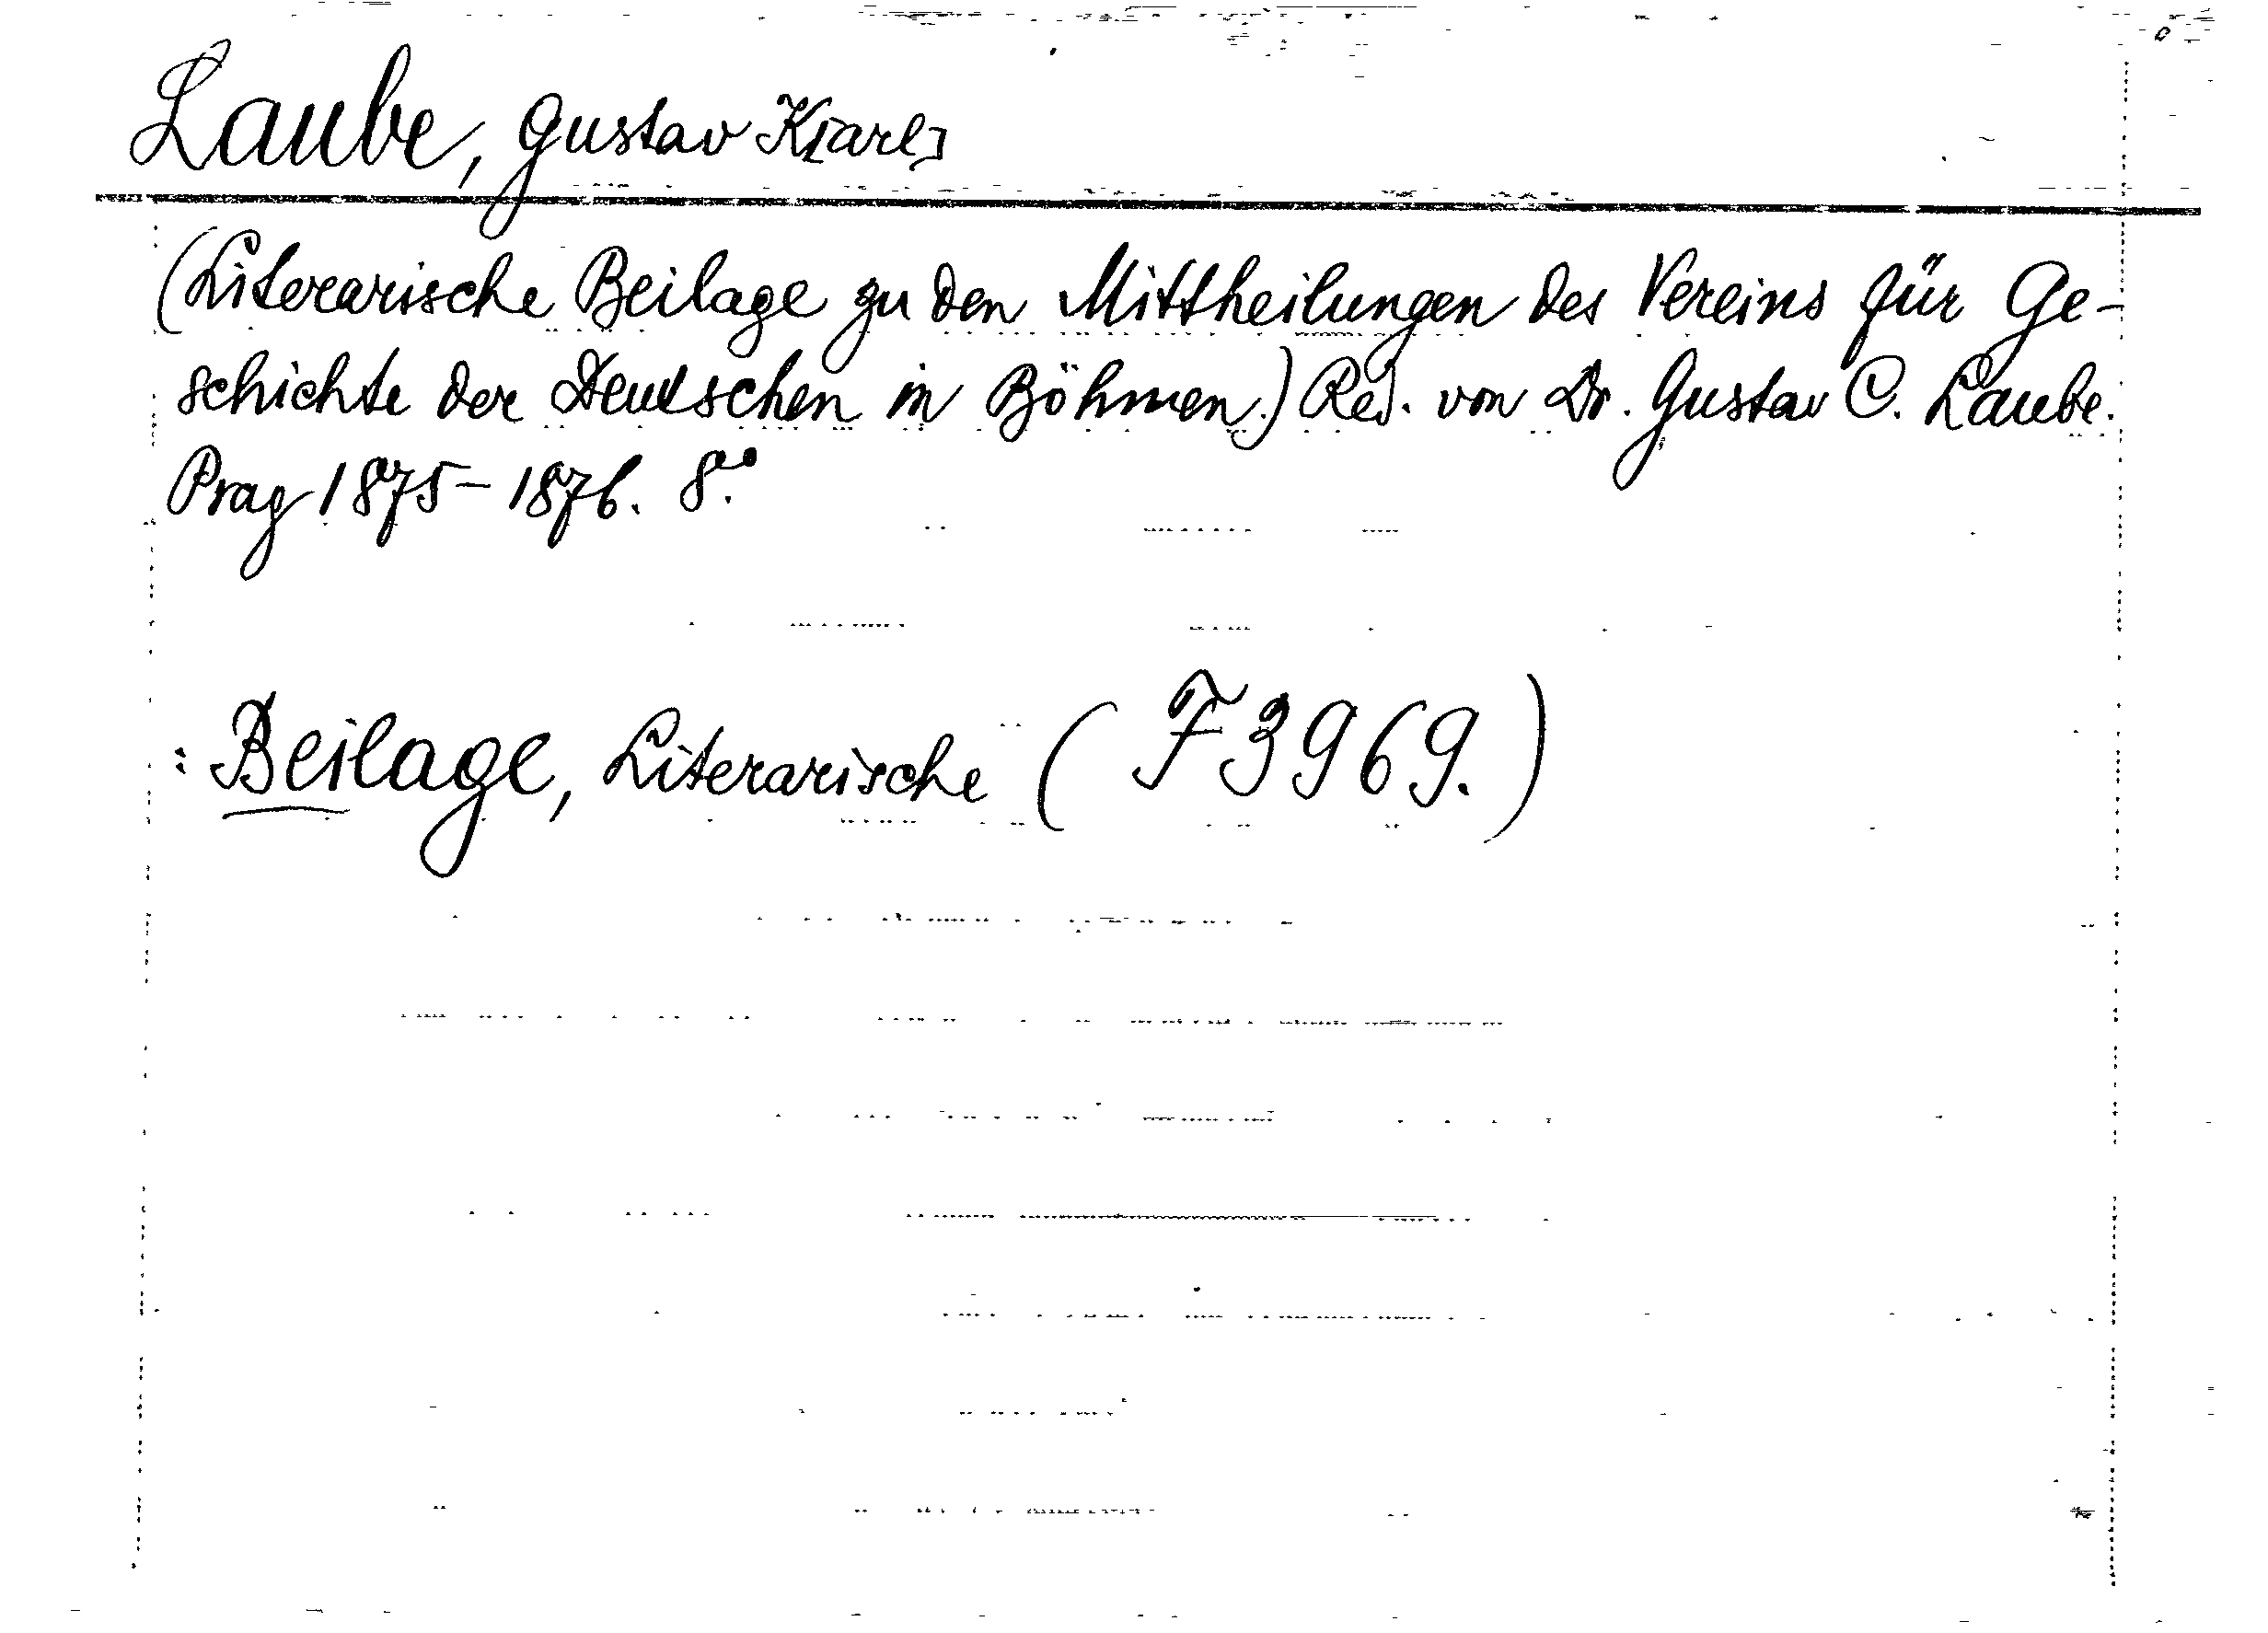 Laube, Gustav K[arl]
(Literarische Beilage zu den Mittheilungen des Vereins für Ge-
schichte der Deutschen in Böhmen.) Red. von Dr. Gustav C. Laube.
Prag 1875-1876. 8.°
: Beilage, Literarische (F 3969.)